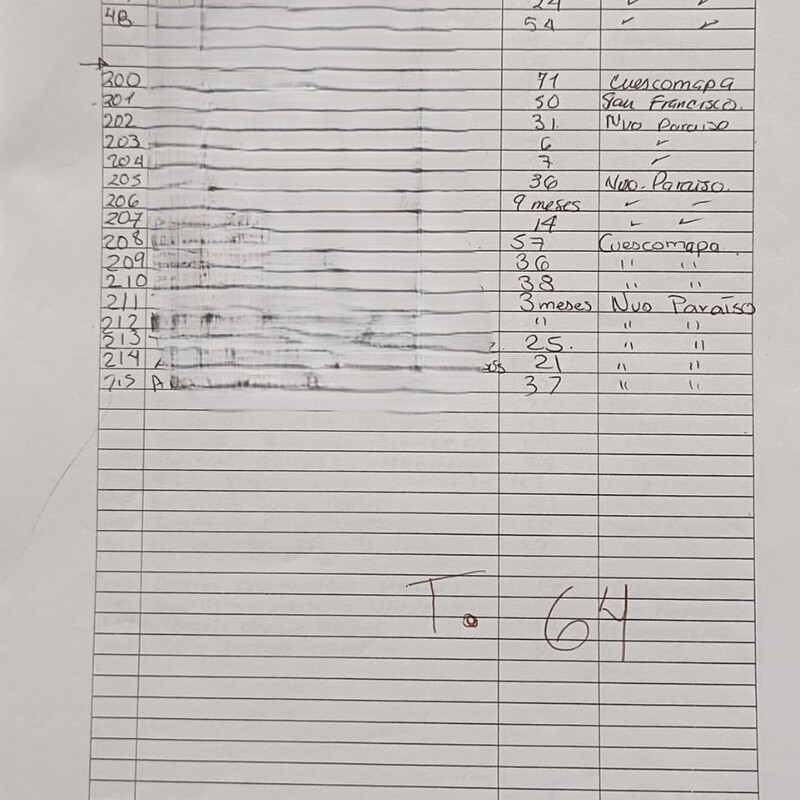 24 ✓ ✓
48 54 ✓ ✓
200 71 Cuescomapa
201 50 San Francisco.
202 31. Nvo Paraiso
203 6 ✓
204 7 ✓
205 36 Nvo. Paraiso.
206 9 meses ✓ –
207 14 ✓ ✓
208 57 Cuescomapa
209 36 '' ''
210 38 '' ''
211 3 meses Nvo Paraíso
212 '' '' ''
213 25. '' ''
214 21 '' ''
215 A 37 '' ''
T. 64